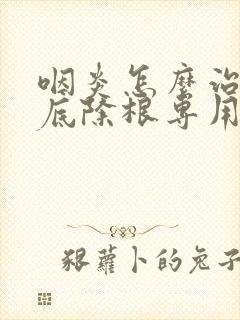 咽炎怎麼治
底除根專用
狠蘿卜的兔子